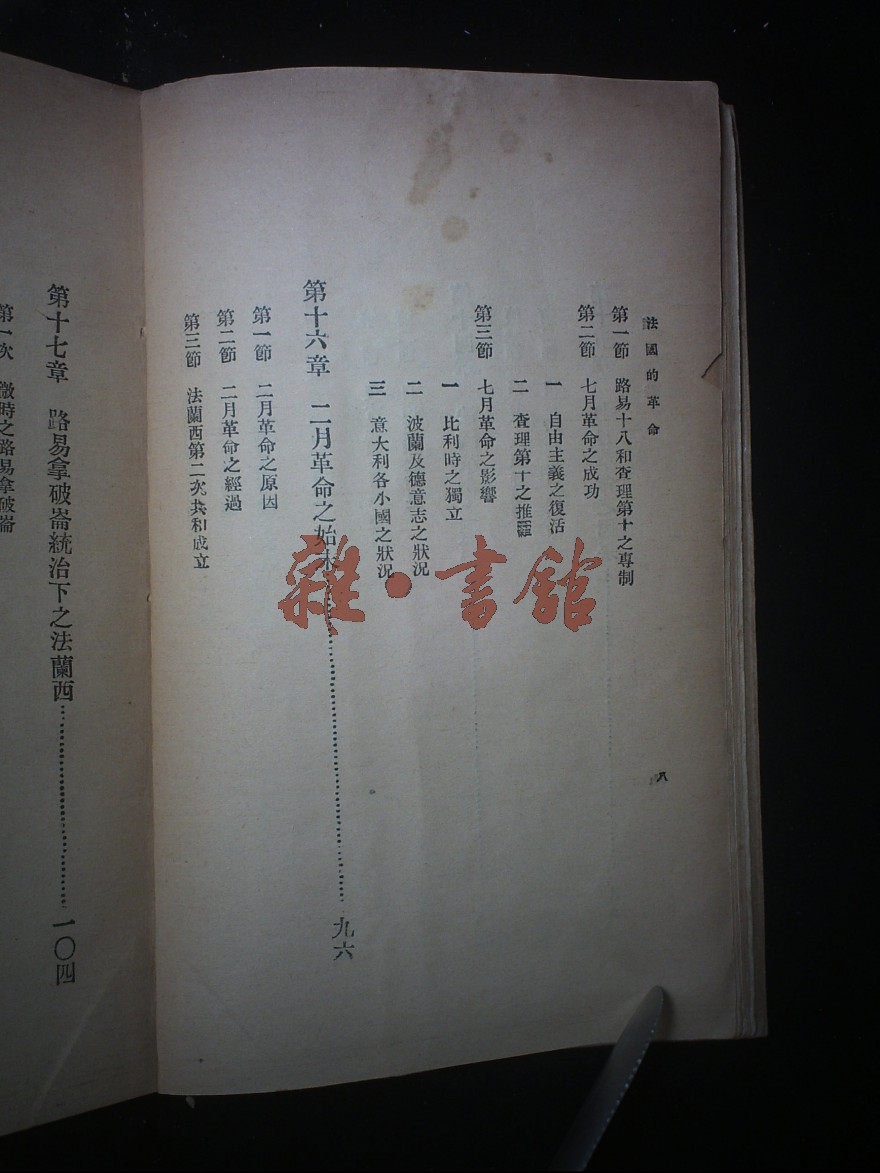 法國的革命
第一節 路易十八和查理第十之專制
第二節 七月革命之成功
一 自由主義之復活
二 查理第十之推羅
第三節 七月革命之影響
一 比利時之獨立
二 波蘭及德意志之狀況
三 意大利各小國之狀況
第十六章 二月革命之始末……九六
第一節 二月革命之原因
第二節 二月革命之經過
第三節 法蘭西第二次共和成立
八
第十七章 路易拿破崙統治下之法蘭西……一〇四
第一次 微時之路易拿破崙
雜·書館